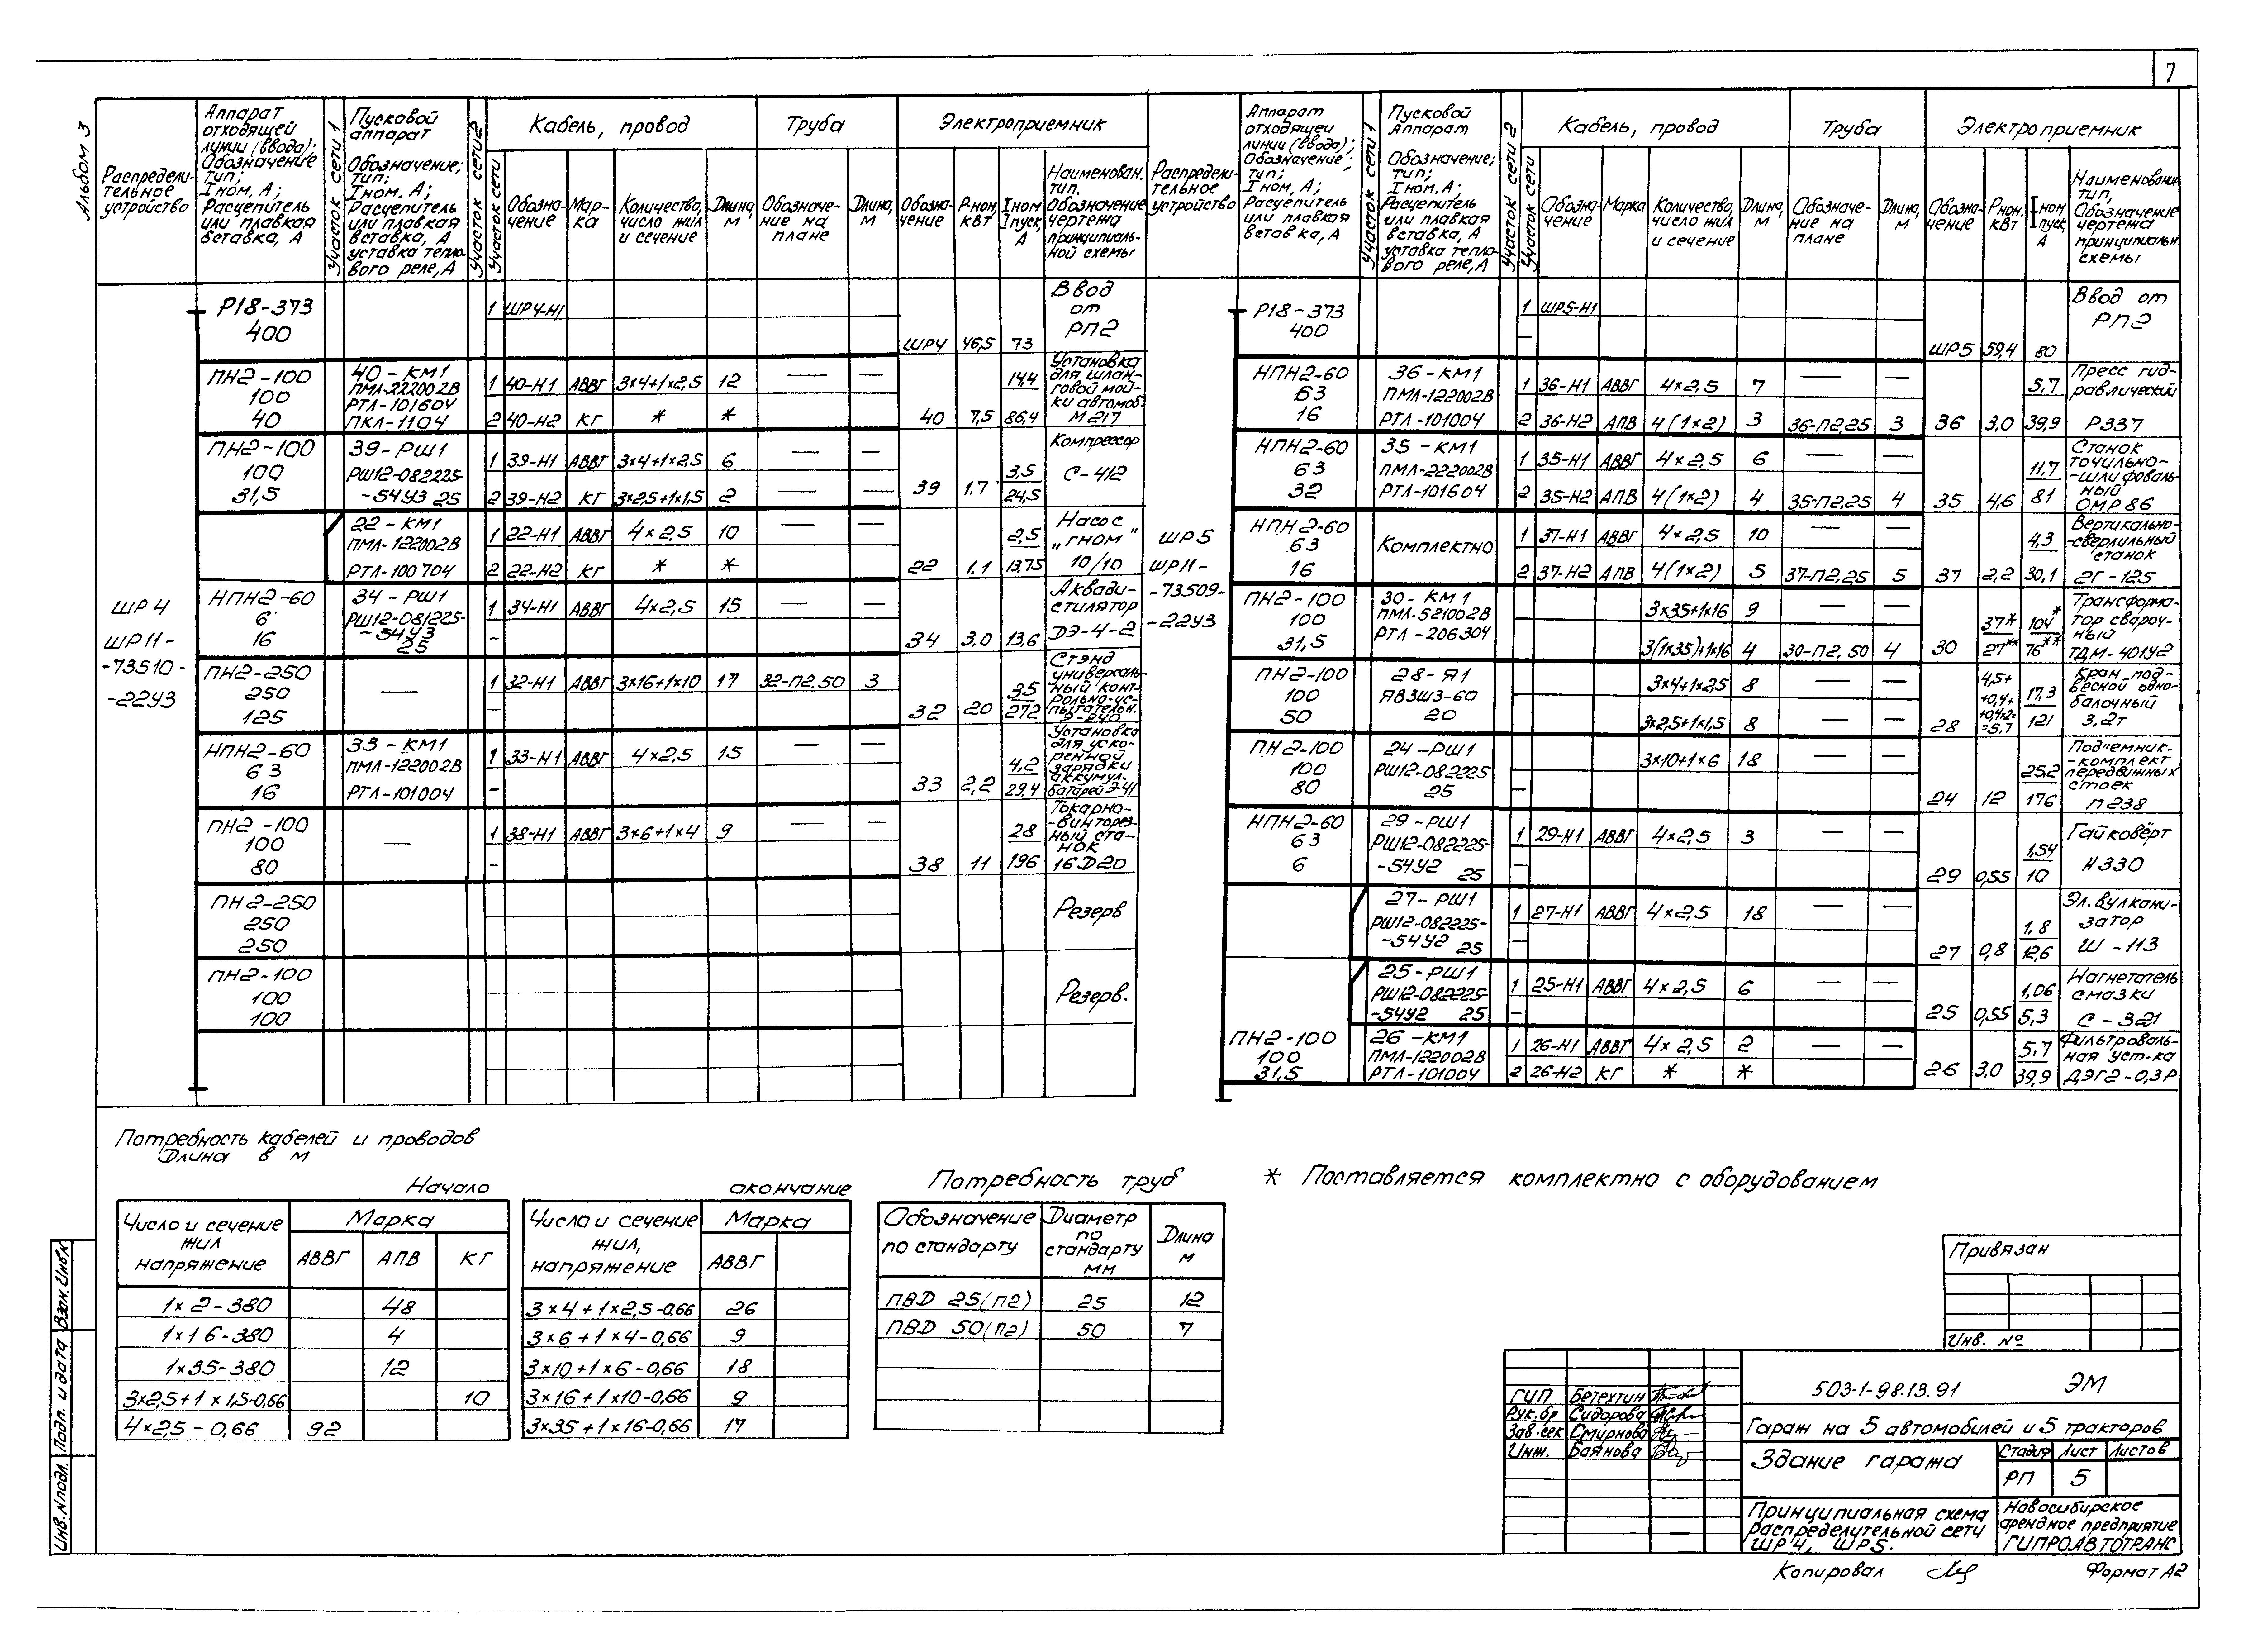 7
Альбом 3
Распредели-
тельное
устройство
Аппарат
отходящей
линии (ввода);
Обозначение
тип;
Iном, А;
Расцепитель
или плавкая
вставка, А
Участок сети 1
Пусковой
аппарат
Обозначение;
тип;
Iном, А;
Расцепитель
или плавкая
вставка, А
уставка тепло-
вого реле, А
Участок сети 2
Участок сети
Кабель, провод
Обозна-
чение
Мар-
ка
Количество,
число жил
и сечение
Длина,
м
Труба
Обозначе-
ние на
плане
Длина,
м
Электроприемник
Обозна-
чение
Рном,
кВт
Iном
Iпуск,
А
Наименован.
тип,
Обозначение
чертежа
принципиаль-
ной схемы
ШР4
ШР11-
-73510-
-22У3
Р18-373
400
1 ШР4-Н1
ШР4 46,5 73
Ввод
от
РП2
ПН2-100
100
40
40-КМ1
ПМЛ-222002В
РТЛ-101604
ПКЛ-1104
1 40-Н1 АВВГ 3×4+1×2,5 12 — —
2 40-Н2 КГ * *
40 7,5 14,4 86,4
Установка
для шлан-
говой мой-
ки автомоб.
М217
ПН2-100
100
31,5
39-РШ1
РШ12-082225-
-54У3 25
1 39-Н1 АВВГ 3×4+1×2,5 6 — —
2 39-Н2 КГ 3×2,5+1×1,5 2 — —
39 1.7 3,5 24,5
Компрессор
С-412
22-КМ1
ПМЛ-122002В
РТЛ-100704
1 22-Н1 АВВГ 4×2,5 10 — —
2 22-Н2 КГ * *
22 1.1 2,5 13,75
Насос
„гном"
10/10
НПН2-60
6
16
34-РШ1
РШ12-081225-
-54У3
25
1 34-Н1 АВВГ 4×2,5 15 — —
-
34 3,0 13,6
Аквади-
стилятор
ДЭ-4-2
ПН2-250
250
125
—
1 32-Н1 АВВГ 3×16+1×10 17 32-П2.50 3
-
32 20 35 272
Стэнд
универсаль-
ный конт-
рольно-ис-
пытательн.
Э-240
НПН2-60
63
16
33-КМ1
ПМЛ-122002В
РТЛ-101004
1 33-Н1 АВВГ 4×2,5 15 — —
-
33 2,2 4,2 29,4
Установка
для уско-
ренной
зарядки
аккумул.
батарей Э-41
ПН2-100
100
80
—
1 38-Н1 АВВГ 3×6+1×4 9 — —
-
38 11 28 196
Токарно-
-винторез-
ный ста-
нок
16Д20
ПН2-250
250
250
Резерв
ПН2-100
100
100
Резерв.
Распредели-
тельное
устройство
Аппарат
отходящей
линии (ввода);
Обозначение;
тип;
Iном, А;
Расцепитель
или плавкая
вставка, А
Участок сети 1
Пусковой
Аппарат
Обозначение;
тип;
Iном. А;
Расцепитель
или плавкая
вставка, А
уставка тепло-
вого реле, А
Участок сети 2
Участок сети
Кабель, провод
Обозна-
чение
Марка
Количество,
число жил
и сечение
Длина,
м
Труба
Обозначе-
ние на
плане
Длина,
м
Электроприемник
Обозна-
чение
Рном.
кВт
Iном
Iпуск,
А
Наименование
тип,
Обозначение
чертежа
принципиальн.
схемы
ШР5
ШР11-
-73509-
-22У3
Р18-373
400
1 ШР5-Н1
—
ШР5 59,4 80
Ввод от
РП2
НПН2-60
63
16
36-КМ1
ПМЛ-122002В
РТЛ-101004
1 36-Н1 АВВГ 4×2,5 7 — —
2 36-Н2 АПВ 4(1×2) 3 36-П2,25 3
36 3,0 5,7 39,9
Пресс гид-
равлический
Р337
НПН2-60
63
32
35-КМ1
ПМЛ-222002В
РТЛ-101604
1 35-Н1 АВВГ 4×2,5 6 — —
2 35-Н2 АПВ 4(1×2) 4 35-П2,25 4
35 4,6 11,7 81
Станок
точильно-
-шлифоваль-
ный
ОМР 86
НПН2-60
63
16
Комплектно
1 37-Н1 АВВГ 4×2,5 10 — —
2 37-Н2 АПВ 4(1×2) 5 37-П2,25 5
37 2,2 4,3 30,1
Вертикально-
-сверлильный
станок
2Г-125
ПН2-100
100
31,5
30-КМ1
ПМЛ-521002В
РТЛ-206304
3×35+1×16 9 — —
3(1×35)+1×16 4 30-П2,50 4
30 37* 27** 104* 76**
Трансформа-
тор свароч-
ный
ТДМ-401У2
ПН2-100
100
50
28-Я1
ЯВЗШ3-60
20
3×4+1×2,5 8
3×2,5+1×1,5 8
28 4,5+
+0,4+
+0,4×2=
=5,7
17,3 121
Кран под-
весной одно-
балочный
3,2т
ПН2-100
100
80
24-РШ1
РШ12-082225
25
3×10+1×6 18 — —
—
24 12 25,2 176
Подъемник-
-комплект
передвижных
стоек
П238
НПН2-60
63
6
29-РШ1
РШ12-082225-
-54У2 25
1 29-Н1 АВВГ 4×2,5 3 — —
—
29 0,55 1,54 10
Гайковёрт
И330
27-РШ1
РШ12-082225-
-54У2 25
1 27-Н1 АВВГ 4×2,5 18 — —
—
27 0,8 1,8 12,6
Эл. вулкани-
затор
Ш-113
25-РШ1
РШ12-082225-
-54У2 25
1 25-Н1 АВВГ 4×2,5 6 — —
-
25 0,55 1,06 5,3
Нагнетатель
смазки
С-321
ПН2-100
100
31,5
26-КМ1
ПМЛ-122002В
РТЛ-101004
1 26-Н1 АВВГ 4×2,5 2 — —
2 26-Н2 КГ * *
26 3,0 5,7 39,9
Фильтроваль-
ная уст-ка
ДЭГ2-0,3Р
Потребность кабелей и проводов
Длина в м
Начало
Число и сечение
жил
напряжение
Марка
АВВГ АПВ КГ
1×2-380 48
1×16-380 4
1×35-380 12
3×2,5+1×1,5-0,66 10
4×2,5-0,66 92
окончание
Число и сечение
жил,
напряжение
Марка
АВВГ
3×4+1×2,5-0,66 26
3×6+1×4-0,66 9
3×10+1×6-0,66 18
3×16+1×10-0,66 9
3×35+1×16-0,66 17
Потребность труб
Обозначение
по стандарту
Диаметр
по
стандарту
мм
Длина
м
ПВД 25(п2) 25 12
ПВД 50(п2) 50 7
* Поставляется комплектно с оборудованием
Привязан
Инв. №
ГИП Бетехтин
Рук.бр Сидорова
Зав.сек Смирнова
Инж. Баянова
503-1-98.13.91 ЭМ
Гараж на 5 автомобилей и 5 тракторов
Здание гаража
Стадия Лист Листов
РП 5
Принципиальная схема
распределительной сети
ШР4, ШР5.
Новосибирское
арендное предприятие
ГИПРОАВТОТРАНС
Копировал
Формат А2
Взам. Инв.№
Подп. и дата
Инв.№подл.